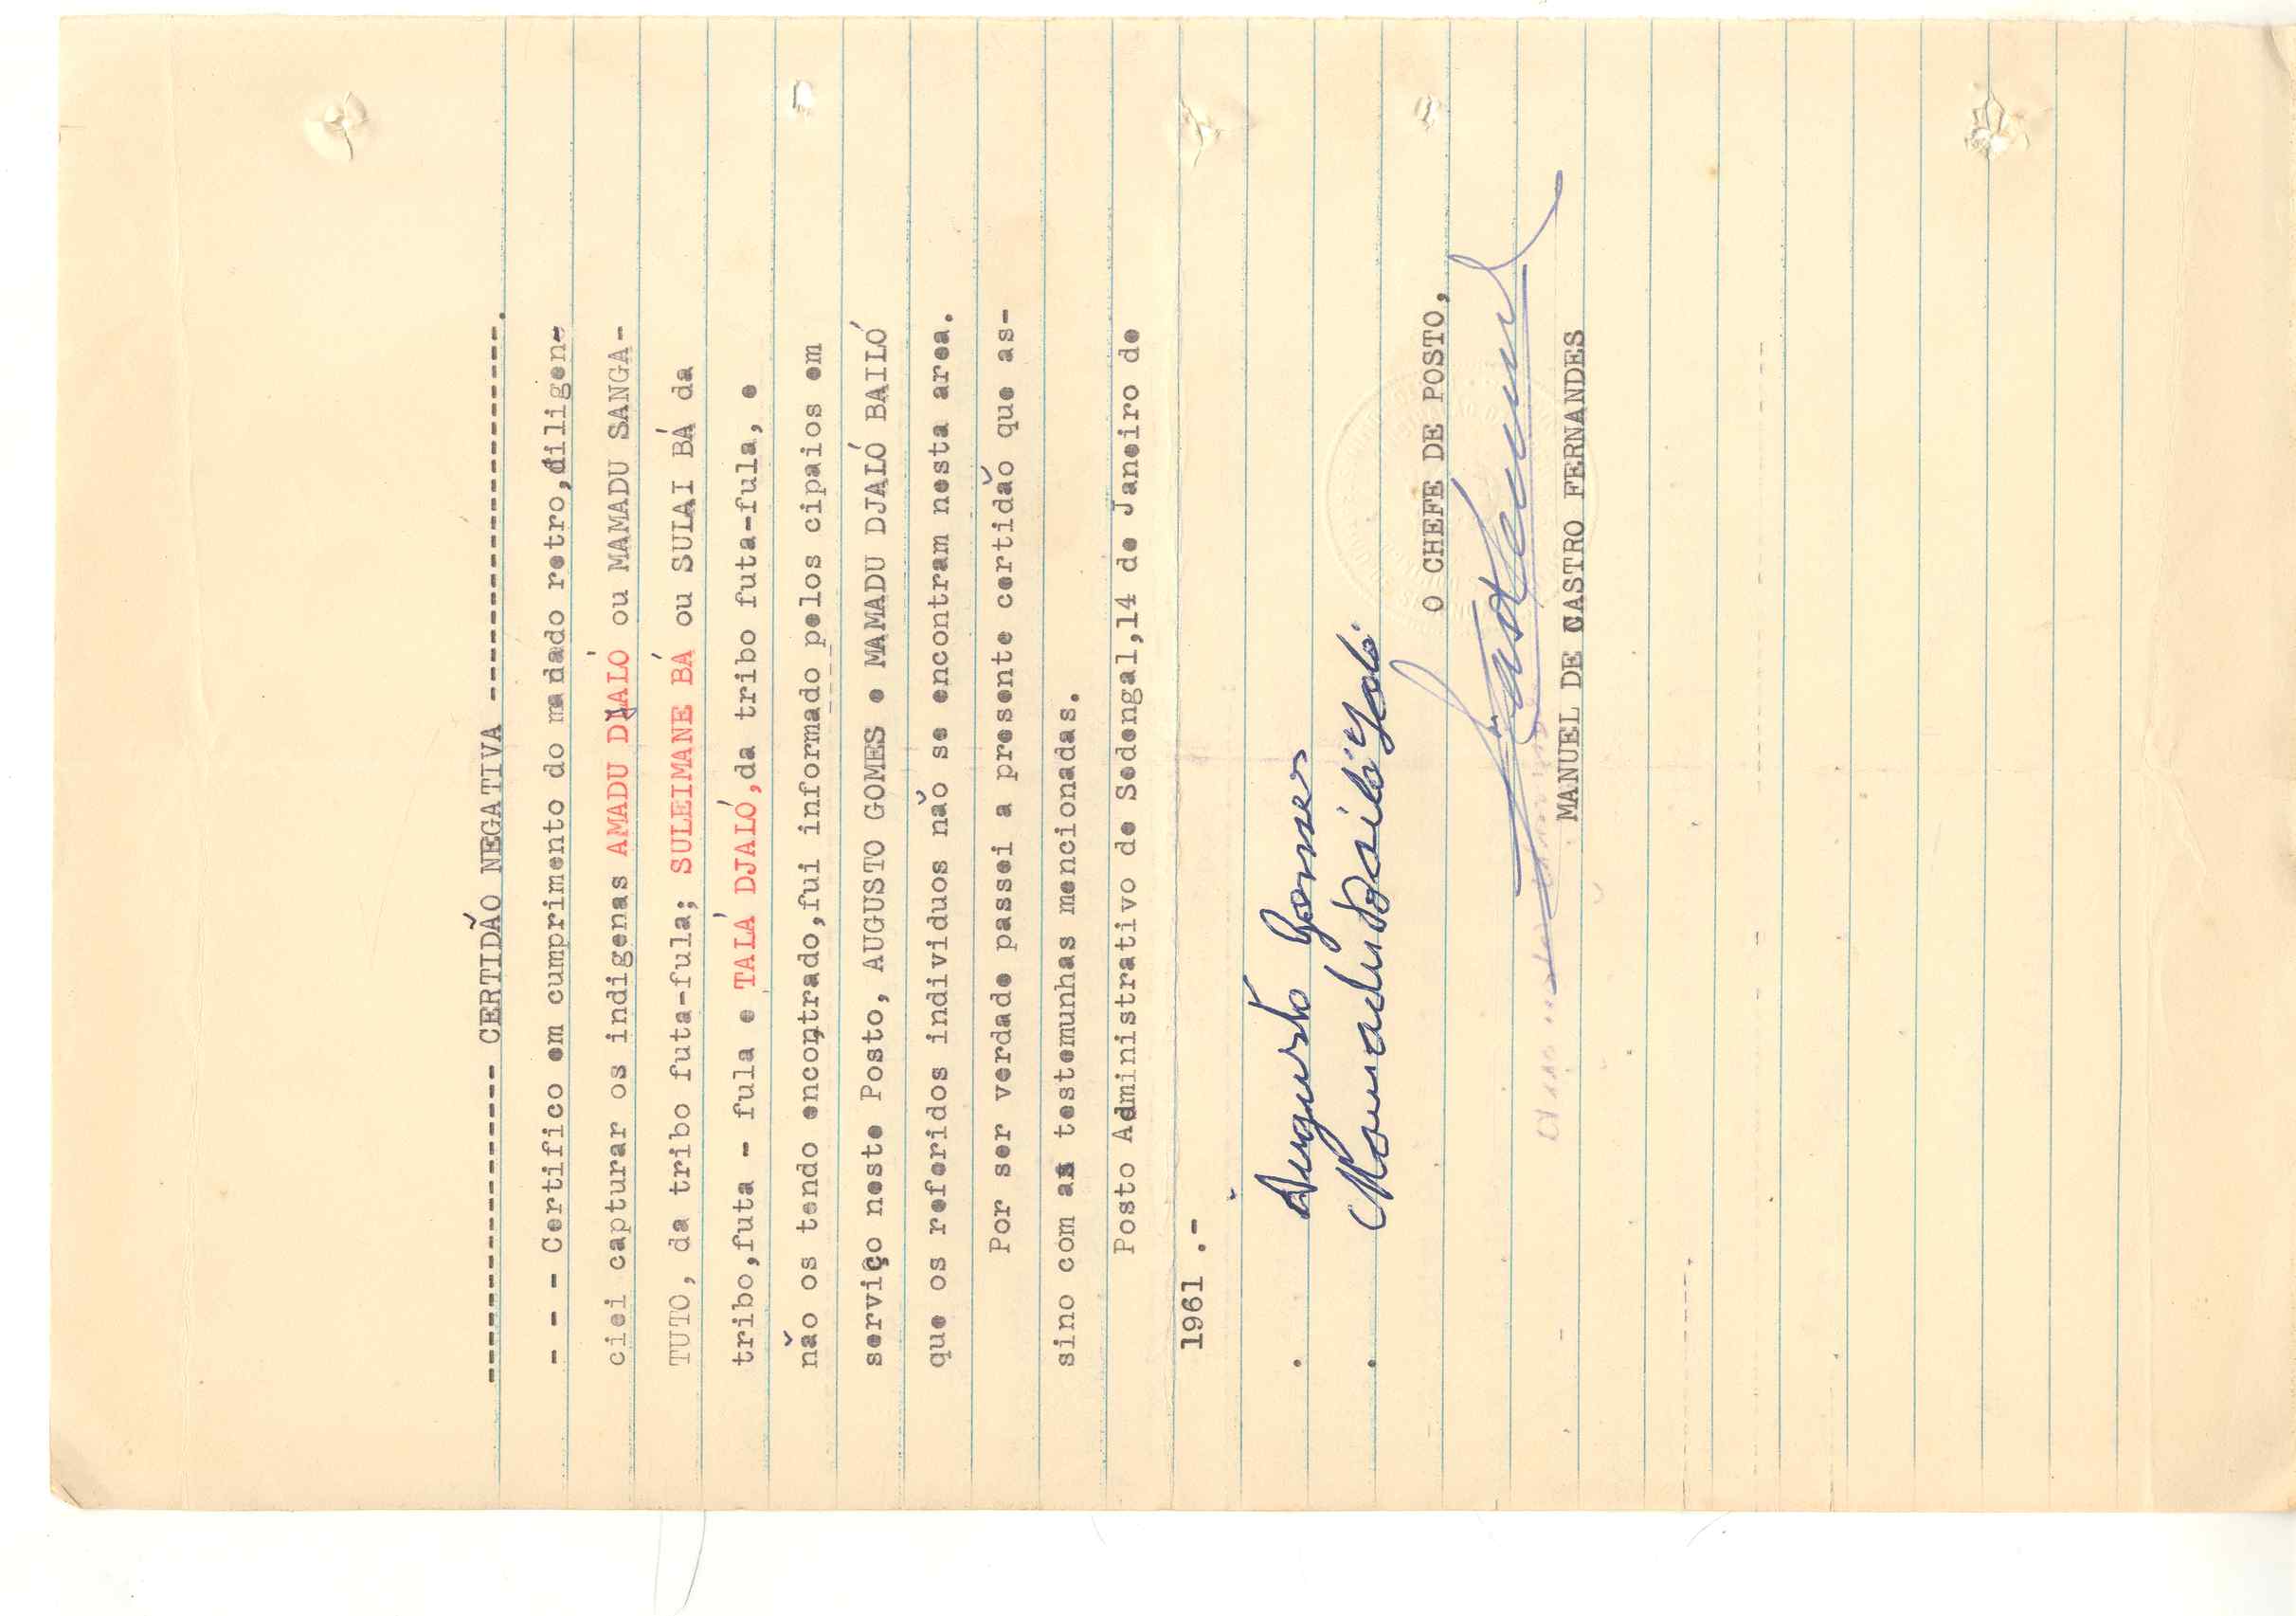 ---------------------- CERTIDÃO NEGATIVA -------------------------.
- - - Certifico em cumprimento do mandado retro,diligen-
ciei capturar os indigenas AMADU DJALÓ ou MAMADU SANGA-
TUTO, da tribo futa-fula; SULEIMANE BÁ ou SULAI BÁ da
tribo,futa - fula e TALÁ DJALÓ,da tribo futa-fula, e
não os tendo encontrado,fui informado pelos cipaios em
serviço neste Posto, AUGUSTO GOMES e MAMADU DJALÓ BAILÓ
que os referidos individuos não se encontram nesta area.
Por ser verdade passei a presente certidão que as-
sino com as testemunhas mencionadas.
Posto Administrativo de Sedengal,14 de Janeiro de
1961 .-
Augusto Gomes
Mamadu Bailó Jaló
O CHEFE DE POSTO,
MANUEL DE CASTRO FERNANDES